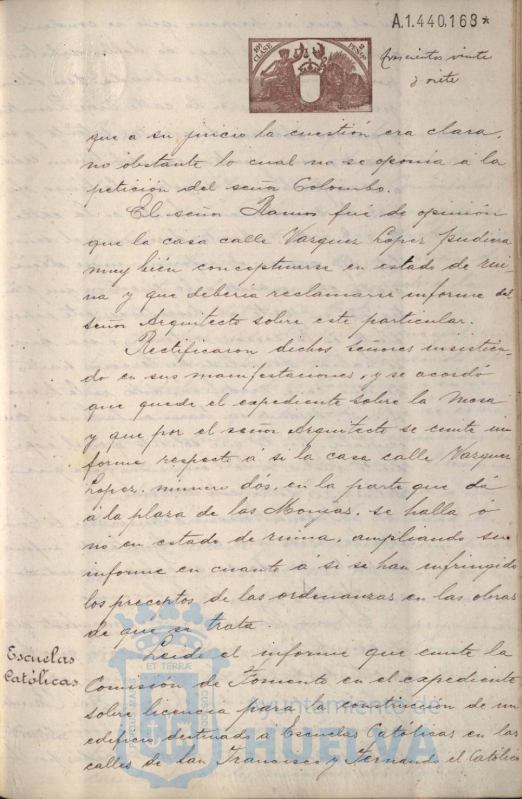 A.1.440,168*
10ª CLASE
2 PESETAS
trescientos veinte
y siete
que a su juicio la cuestión era clara,
no obstante lo cual no se oponia á la
petición del señor Colombo.
El señor Ramos fué de opinión
que la casa calle Vazquez Lopez pudiera
muy bién conceptuarse en estado de rui
na y que debería reclamarse informe del
señor Arquitecto sobre este particular.
Rectificaron dichos señores insistien
do en sus manifestaciones, y se acordó
que quede el expediente sobre la mesa
y que por el señor Arquitecto se emita in
forme respecto á si la casa calle Vazquez
Lopez, número dós, en la parte que dá
á la plaza de las Monjas, se halla ó
nó en estado de ruina, ampliando su
informe en cuanto á si se han infringido
los preceptos de las ordenanzas en las obras
de que se trata.
Escuelas
Católicas
Leido el informe que emite la
Comisión de Fomento en el expediente
sobre licencia para la construcción de un
edificio destinado á Escuelas Católicas en las
calles de San Francisco y Fernando el Católico
ET TERRÆ
Ayuntamiento de
HUELVA